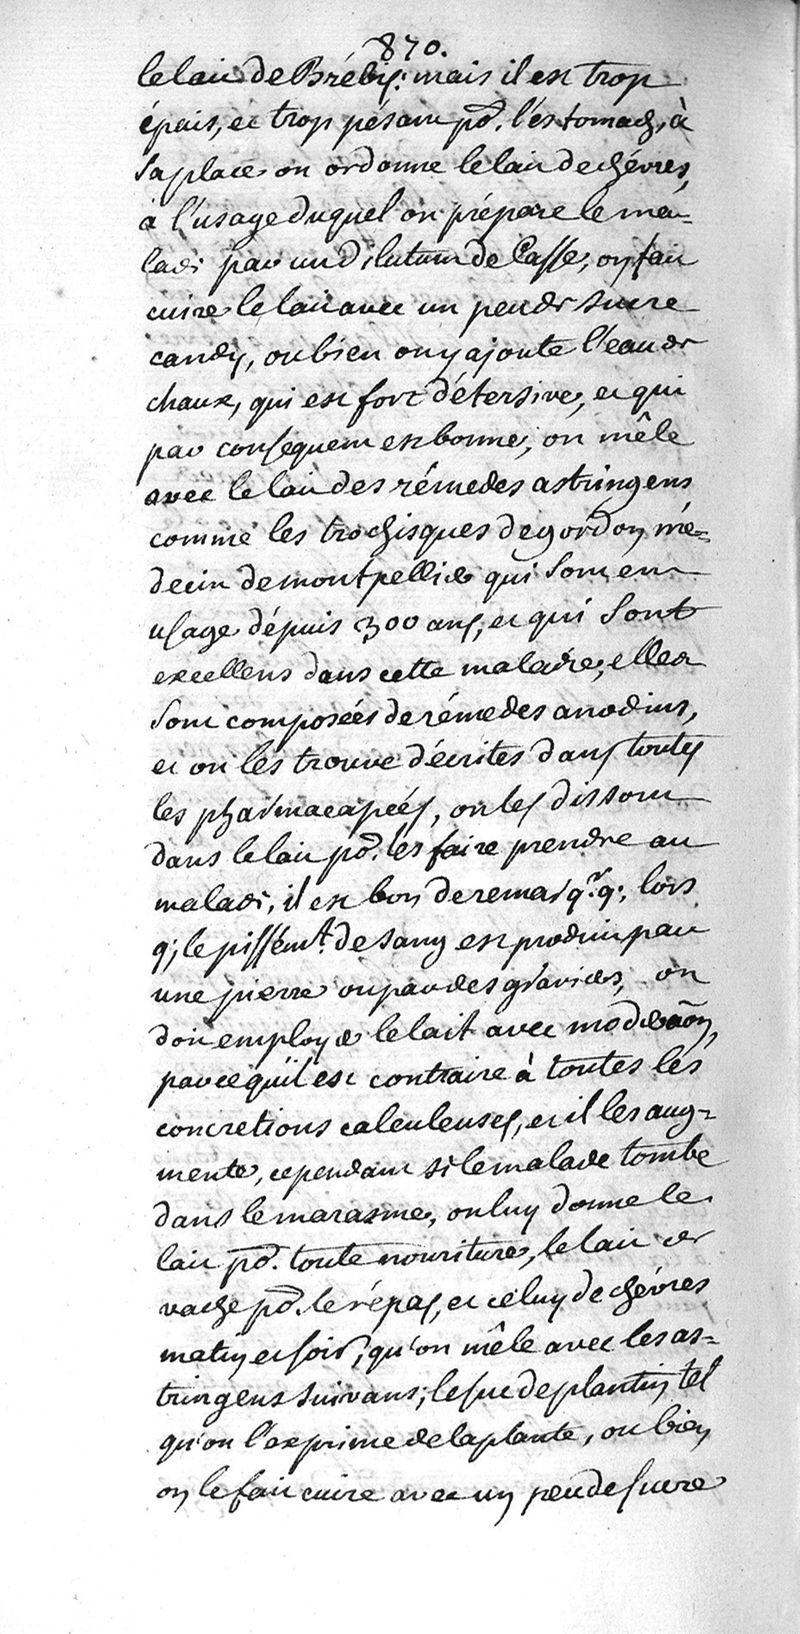 870.
le lait de Brébis: mais il est trop
épais, et trop pésant po.r l'estomach, à
sa place on ordonne le lait de chévres,
à l'usage duquel on prépare le ma=
lade par un dilutum de Casse, on fait
cuire le lait avec un peu de sucre
candy, ou bien on y ajoute l'eau de
chaux, qui est fort détersive, et qui
par consequent est bonne, on mêle
avec le lait des rémedes astringens
comme les trochisques de gordon mé=
decin de montpellier qui sont en
usage dépuis 300 ans, et qui sont
excellens dans cette maladie, elles
sont composées de rémedes anodins,
et on les trouve décrites dans toutes
les pharmacapées, on les dissout
dans le lait po.r les faire prendre au
malade, il est bon de remarq.r q; lors
q; le pissém.t de sang est produit par
une pierre ou par des graviers, on
doit employer le lait avec moderaõn,
parce qu'il est contraire à toutes les
concretions calculeuses, et il les aug=
mente, cependant si le malade tombe
dans le marasme, on luy donne le
lait po.r toute nouriture, le lait de
vache po.r le répas, et celuy de chévres
matin et soir, qu'on mêle avec les as=
tringens suivans; le suc de plantin tel
qu'on l'exprime de la plante, ou bien
on le fait cuire avec un peu de sucre